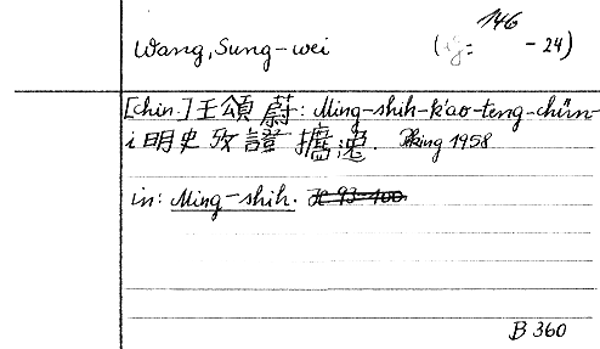 146
Wang, Sung-wei ( = - 24)
[chin.] 王頌蔚: Ming-shih-k'ao-teng-chün-
i 明史攷證攟逸. Peking 1958
in: Ming-shih. H 93-100.
B 360